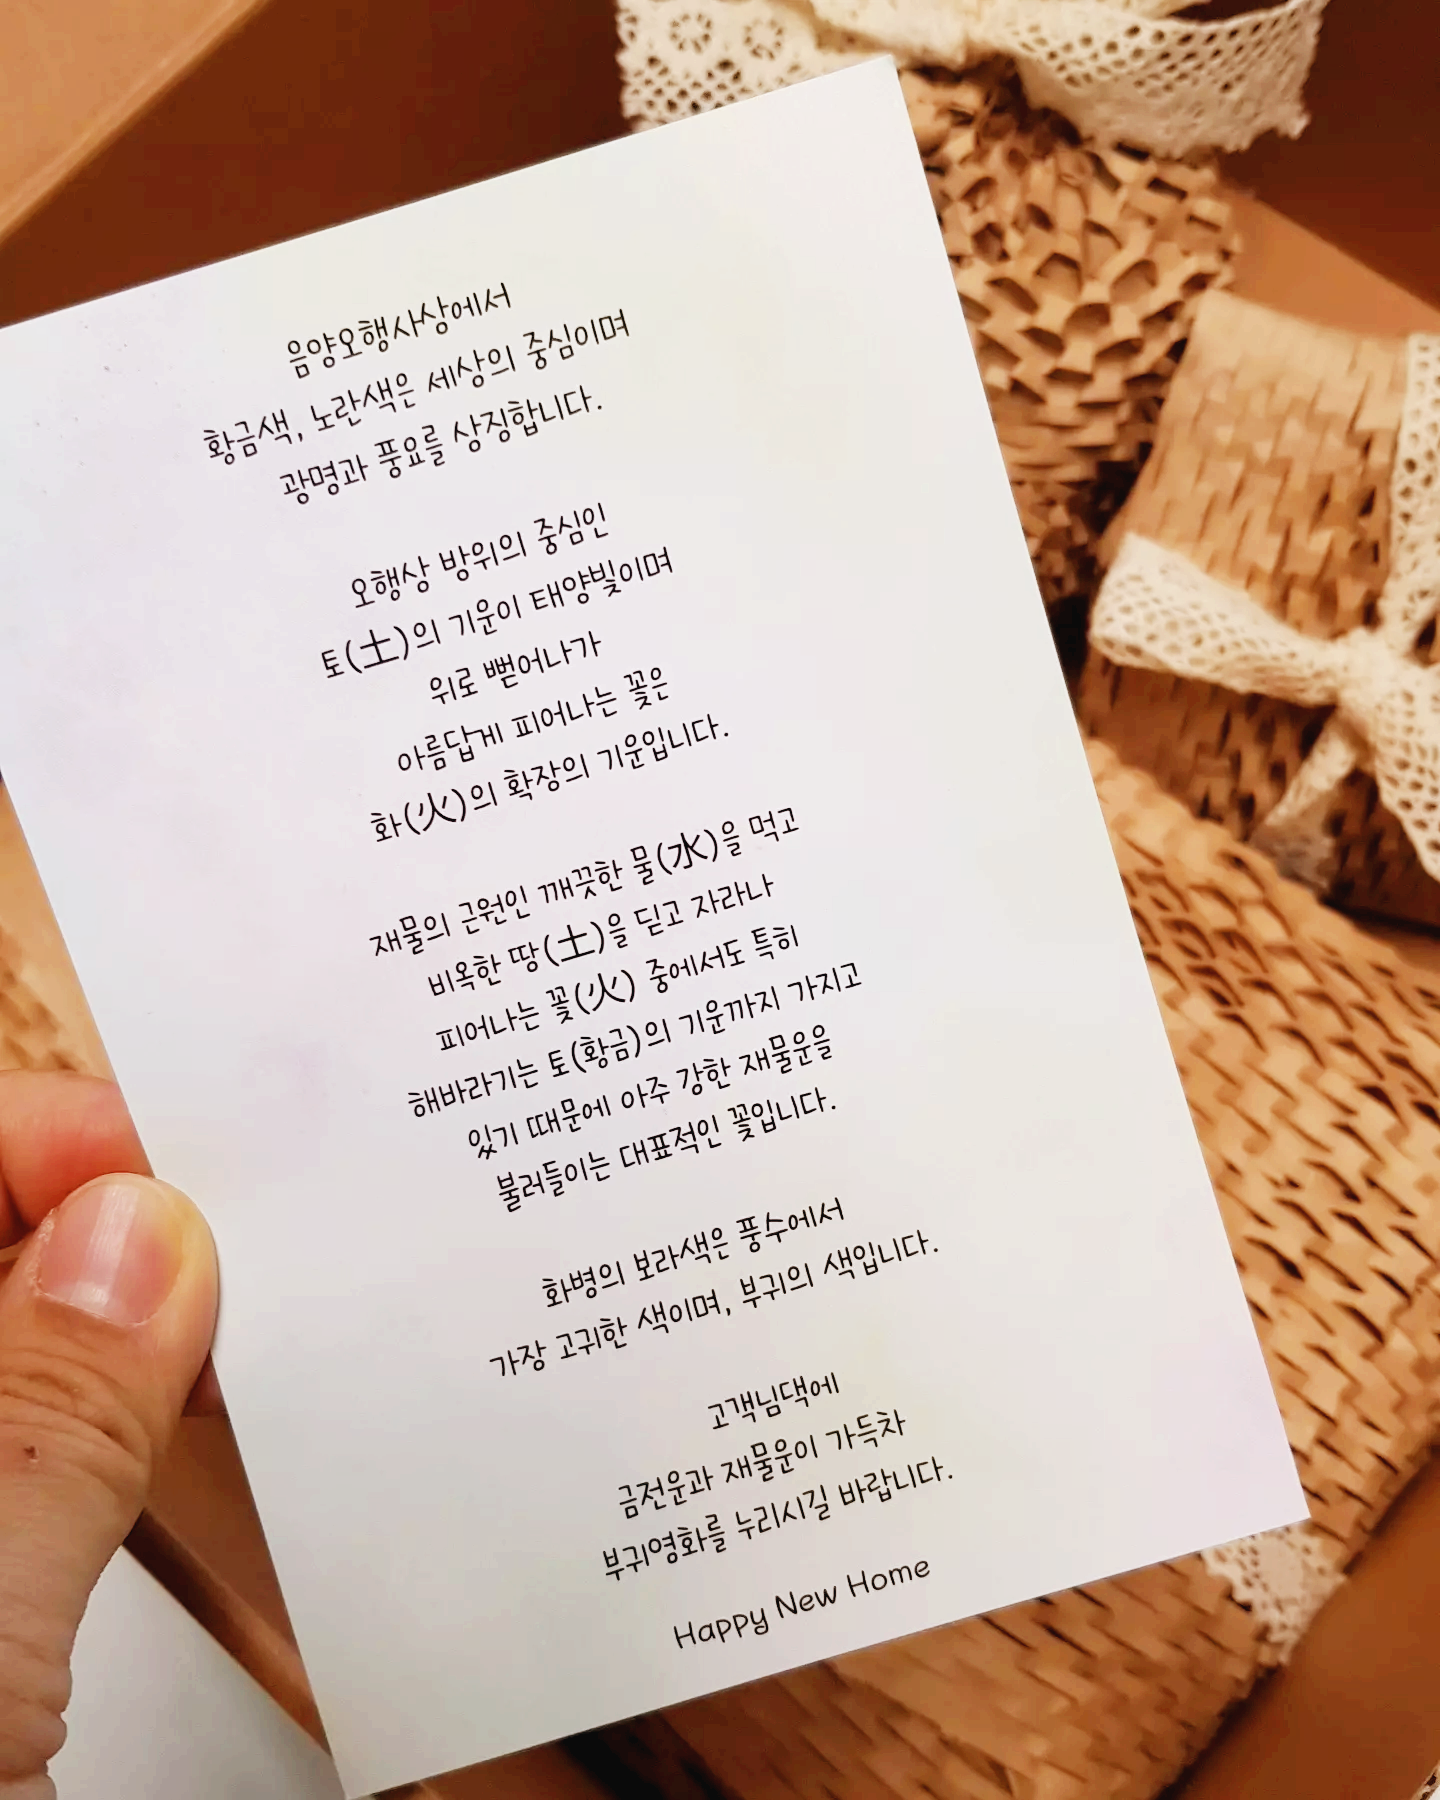 음양오행사상에서
황금색, 노란색은 세상의 중심이며
광명과 풍요를 상징합니다.
오행상 방위의 중심인
토(土)의 기운이 태양빛이며
위로 뻗어나가
아름답게 피어나는 꽃은
화(火)의 확장의 기운입니다.
재물의 근원인 깨끗한 물(水)을 먹고
비옥한 땅(土)을 딛고 자라나
피어나는 꽃(火) 중에서도 특히
해바라기는 토(황금)의 기운까지 가지고
있기 때문에 아주 강한 재물운을
불러들이는 대표적인 꽃입니다.
화병의 보라색은 풍수에서
가장 고귀한 색이며, 부귀의 색입니다.
고객님댁에
금전운과 재물운이 가득차
부귀영화를 누리시길 바랍니다.
Happy New Home